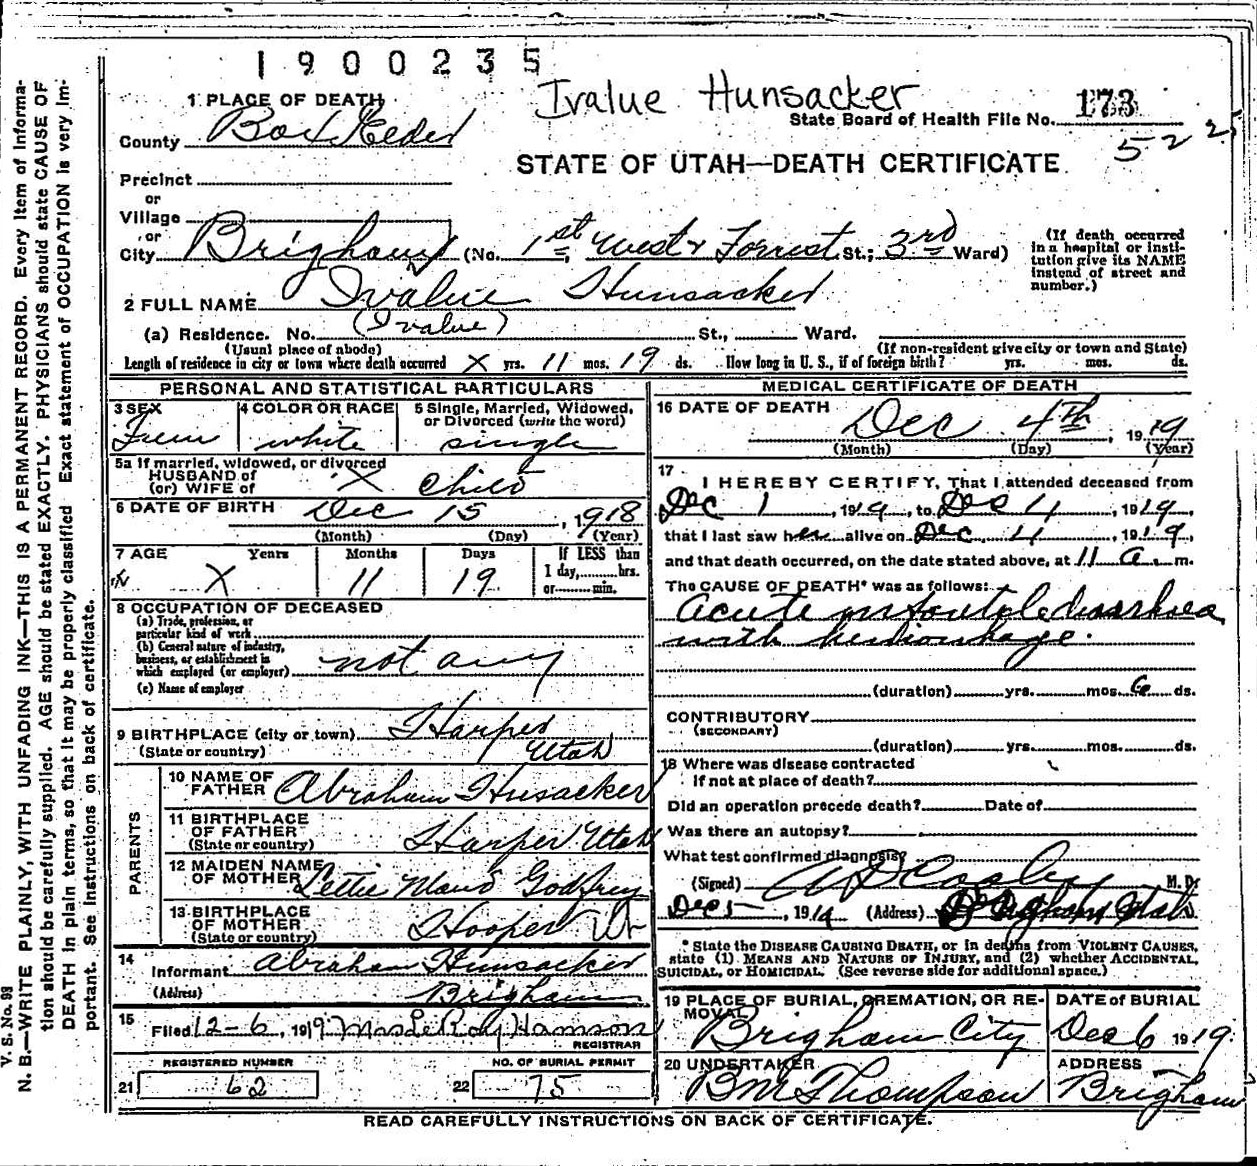 1900235
Ivalue Hunsacker
1 PLACE OF DEATH
County Box Elder
State Board of Health File No. 173
522
STATE OF UTAH—DEATH CERTIFICATE
Precinct
or
Village
or
City Brigham (No. 1st West & Forrest St.; 3rd Ward)
(If death occurred in a hospital or institution give its NAME instead of street and number.)
2 FULL NAME Ivalue Hunsacker
(Ivalue)
(a) Residence. No. St., Ward.
(Usual place of abode) (If non-resident give city or town and State)
Length of residence in city or town where death occurred X yrs. 11 mos. 19 ds. How long in U. S., if of foreign birth? yrs. mos. ds.
PERSONAL AND STATISTICAL PARTICULARS
3 SEX Fem
4 COLOR OR RACE white
5 Single, Married, Widowed, or Divorced (write the word) single
5a If married, widowed, or divorced
HUSBAND of
(or) WIFE of X child
6 DATE OF BIRTH Dec 15, 1918
(Month) (Day) (Year)
7 AGE Years Months Days If LESS than
X 11 19 1 day, hrs.
or min.
8 OCCUPATION OF DECEASED
(a) Trade, profession, or
particular kind of work
(b) General nature of industry,
business, or establishment in
which employed (or employer) not any
(c) Name of employer
9 BIRTHPLACE (city or town) Harper
(State or country) Utah
PARENTS
10 NAME OF FATHER Abraham Husacker
11 BIRTHPLACE OF FATHER (State or country) Harper Utah
12 MAIDEN NAME OF MOTHER Lettie Maud Godfrey
13 BIRTHPLACE OF MOTHER (State or country) Hooper Ut
14 Informant Abraham Hunsacker
(Address) Brigham
15 Filed 12-6, 1919 Mrs LeRoy Hamson
REGISTRAR
REGISTERED NUMBER
21 62
NO. OF BURIAL PERMIT
22 75
MEDICAL CERTIFICATE OF DEATH
16 DATE OF DEATH Dec 4th, 1919
(Month) (Day) (Year)
17 I HEREBY CERTIFY, That I attended deceased from
Dec 1, 1919, to Dec 4, 1919,
that I last saw her alive on Dec 4, 1919,
and that death occurred, on the date stated above, at 11 a. m.
The CAUSE OF DEATH* was as follows:
Acute infantile diarrhoea
with hemorrhage.
(duration) yrs. mos. 6 ds.
CONTRIBUTORY
(SECONDARY)
(duration) yrs. mos. ds.
18 Where was disease contracted
if not at place of death?
Did an operation precede death? Date of
Was there an autopsy?
What test confirmed diagnosis?
(Signed) A D Cooley M. D.
Dec 5, 1919 (Address) Brigham Utah
* State the DISEASE CAUSING DEATH, or in deaths from VIOLENT CAUSES,
state (1) MEANS AND NATURE OF INJURY, and (2) whether ACCIDENTAL,
SUICIDAL, or HOMICIDAL. (See reverse side for additional space.)
19 PLACE OF BURIAL, CREMATION, OR REMOVAL Brigham City
DATE of BURIAL Dec 6 1919.
20 UNDERTAKER B M Thompson
ADDRESS Brigham
READ CAREFULLY INSTRUCTIONS ON BACK OF CERTIFICATE.
V. S. No. 93
N. B.—WRITE PLAINLY, WITH UNFADING INK—THIS IS A PERMANENT RECORD. Every item of Informa-
tion should be carefully supplied. AGE should be stated EXACTLY. PHYSICIANS should state CAUSE OF
DEATH in plain terms, so that it may be properly classified. Exact statement of OCCUPATION is very Im-
portant. See Instructions on back of certificate.